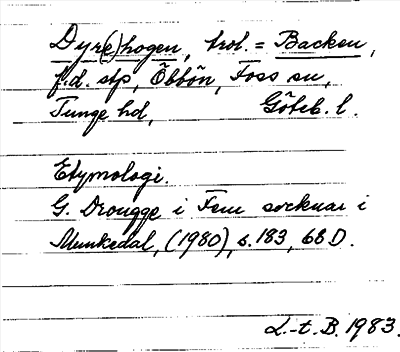 Dyr(e)hogen, trol. = Backen,
f.d. stp, Öbbön, Foss sn,
Tunge hd, Göteb. l.
Etymologi.
G. Drougge i Fem socknar i
Munkedal, (1980), s. 183, 68 D.
L.-t. B. 1983.